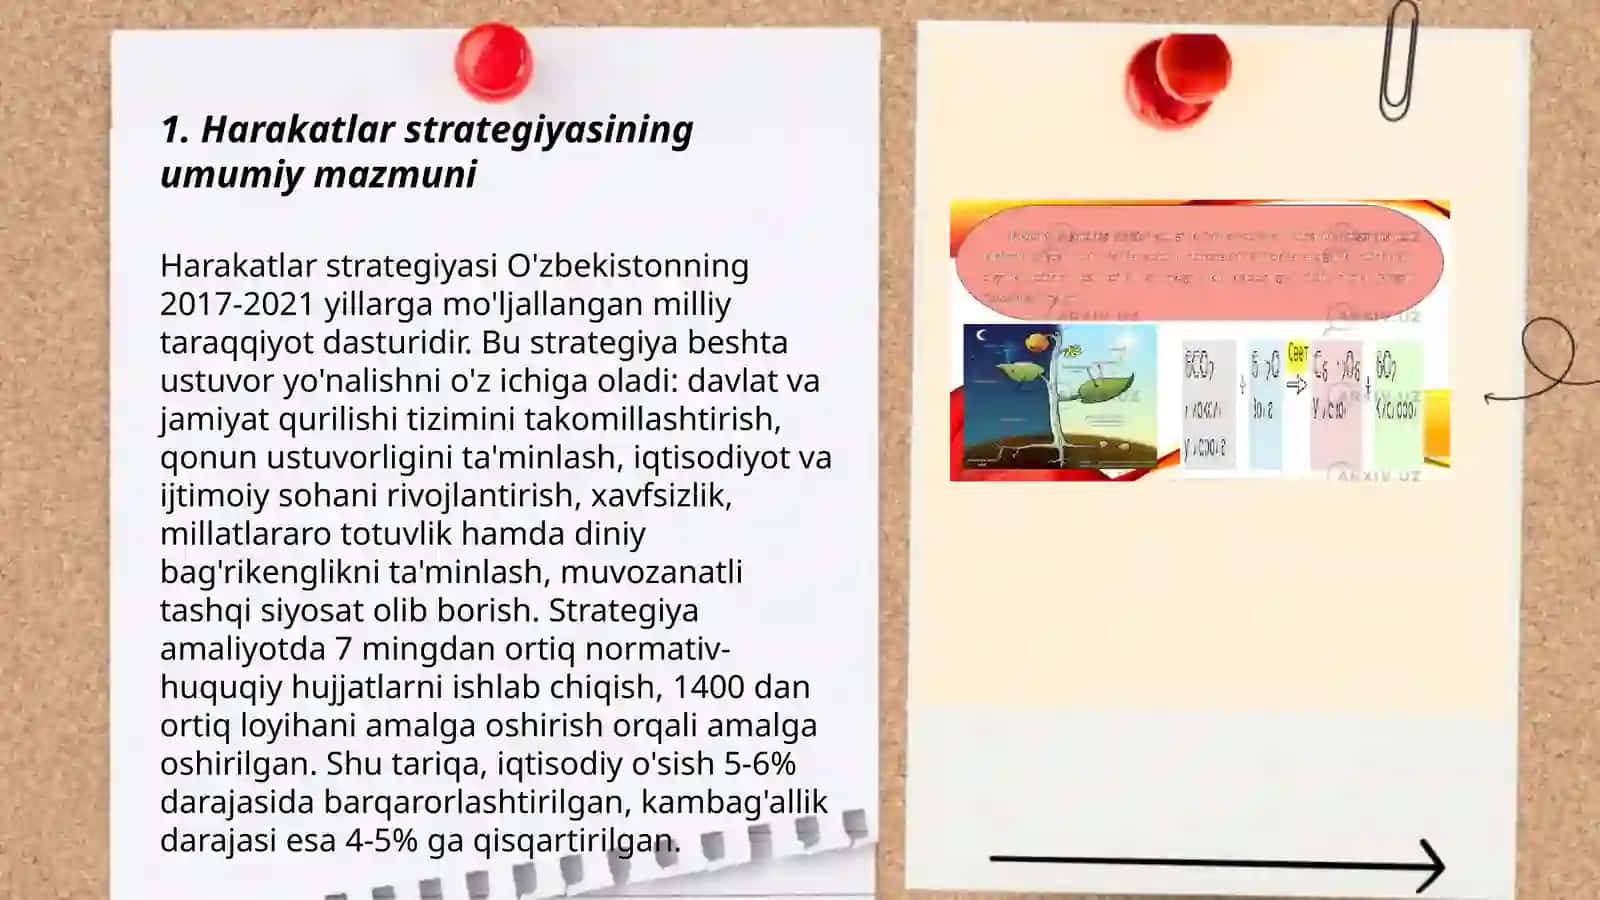 1. Harakatlar strategiyasining
umumiy mazmuni
Harakatlar strategiyasi O'zbekistonning
2017-2021 yillarga mo'ljallangan milliy
taraqqiyot dasturidir. Bu strategiya beshta
ustuvor yo'nalishni o'z ichiga oladi: davlat va
jamiyat qurilishi tizimini takomillashtirish,
qonun ustuvorligini ta'minlash, iqtisodiyot va
ijtimoiy sohani rivojlantirish, xavfsizlik,
millatlararo totuvlik hamda diniy
bag'rikenglikni ta'minlash, muvozanatli
tashqi siyosat olib borish. Strategiya
amaliyotda 7 mingdan ortiq normativ-
huquqiy hujjatlarni ishlab chiqish, 1400 dan
ortiq loyihani amalga oshirish orqali amalga
oshirilgan. Shu tariqa, iqtisodiy o'sish 5-6%
darajasida barqarorlashtirilgan, kambag'allik
darajasi esa 4-5% ga qisqartirilgan.
ARXIV.UZ
Свет